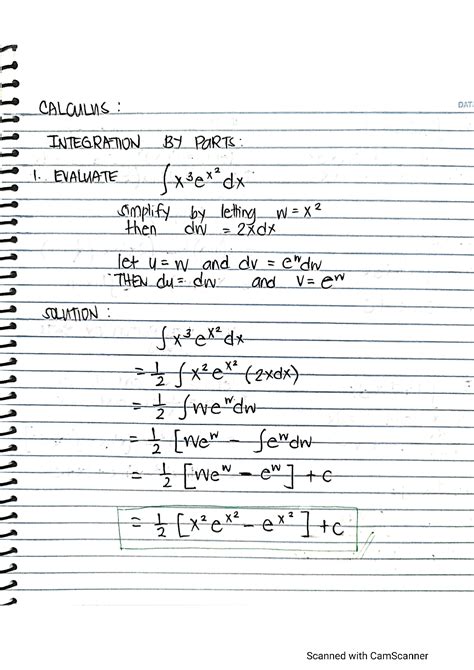 CALCULUS :
DAT
INTEGRATION BY PARTS:
1. EVALUATE ∫x³eˣ²dx
simplify by letting w = x²
then dw = 2xdx
let u = w and dv = eʷdw
THEN du = dw and V = eʷ
SOLUTION :
∫x³eˣ²dx
= 1/2 ∫x²eˣ² (2xdx)
= 1/2 ∫weʷdw
= 1/2 [weʷ - ∫eʷdw
= 1/2 [weʷ - eʷ] + c
= 1/2 [x²eˣ² - eˣ²] + c
Scanned with CamScanner